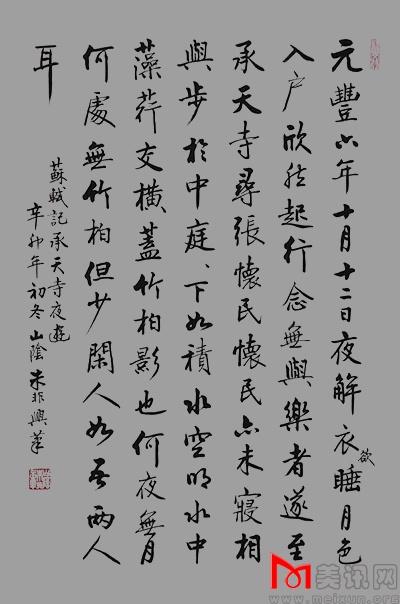 元豐六年十月十二日夜解衣欲睡月色
入户欣然起行念無與樂者遂至
承天寺尋張懷民懷民亦未寢相
與步於中庭、下如積水空明水中
藻荇交橫蓋竹柏影也何夜無月
何處無竹柏但少閑人如吾兩人
耳
蘇軾記承天寺夜遊
辛卯年初冬山陰朱非興筆
美讯网
www.meixun.org